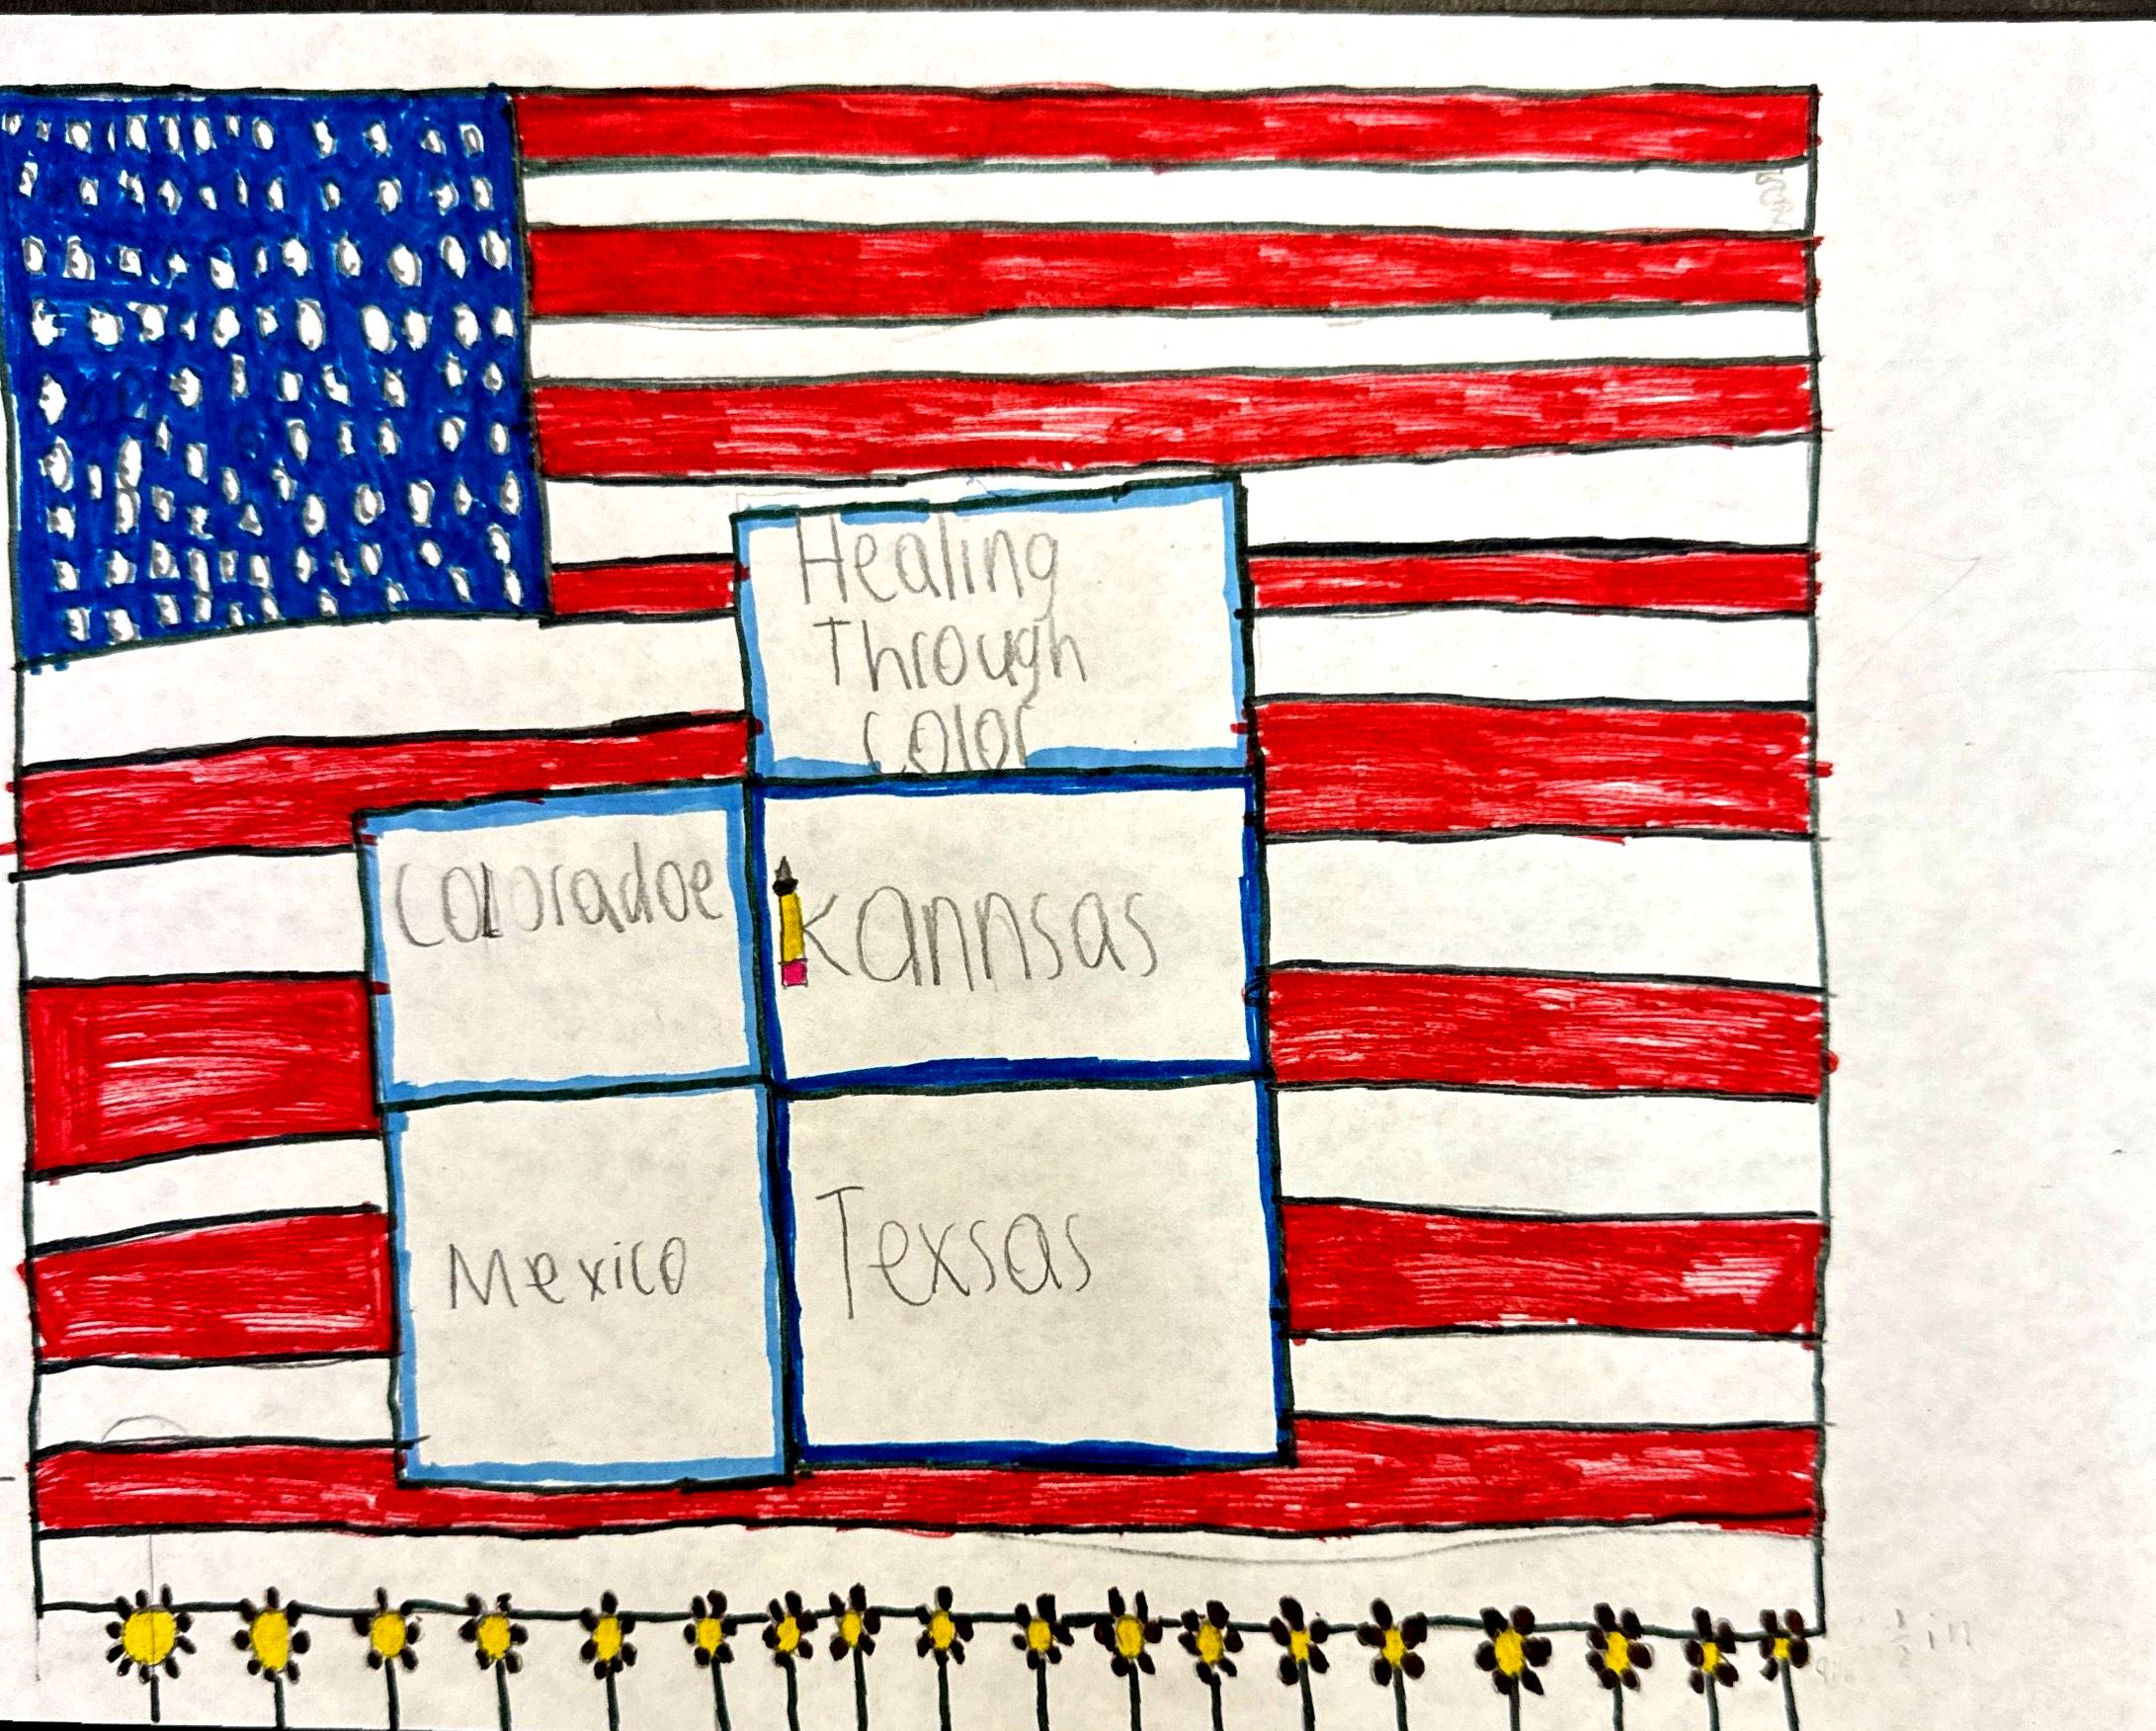 Healing
Through
Color
Coloradoe
Kannsas
Mexico
Texsas